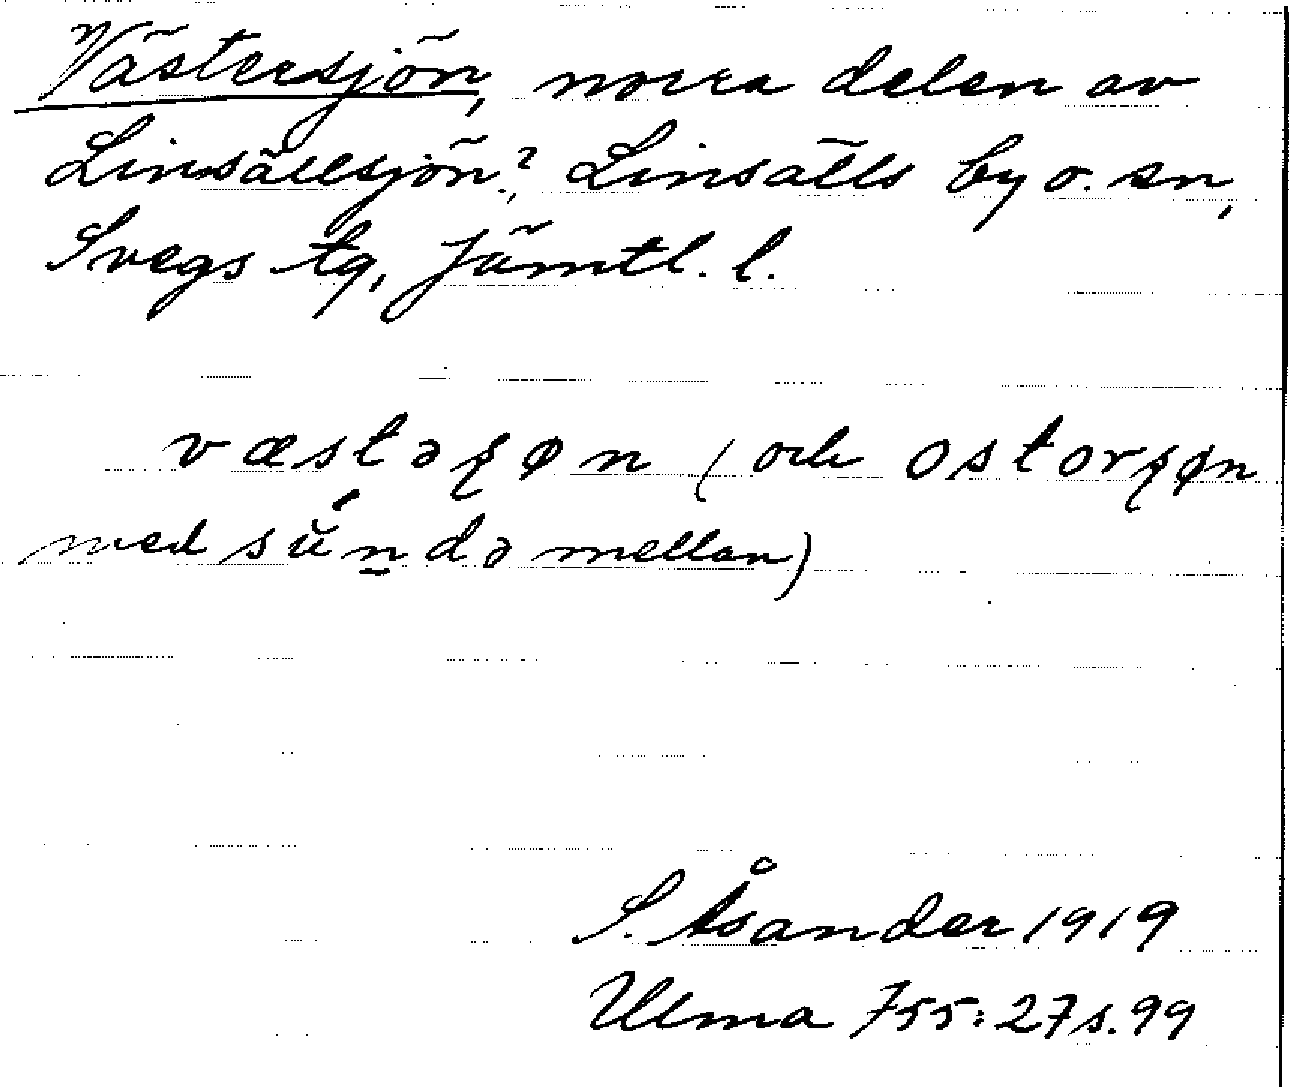 Västersjön, norra delen av
Linsällsjön?, Linsälls by o. sn,
Svegs tg, Jämtl. l.
væstəʂøn (och ostorʂøn
med sŭ́n̲də mellan)
S. Åsander 1919
Ulma 755:27 s. 99